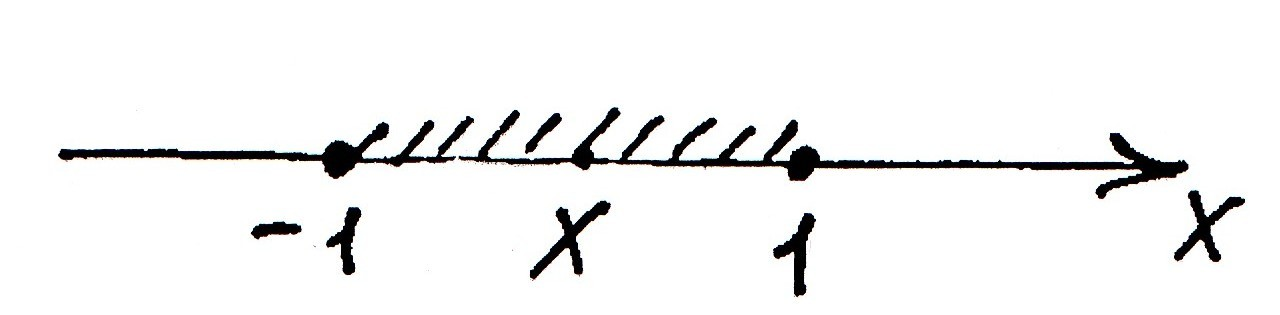 -1 x 1 x